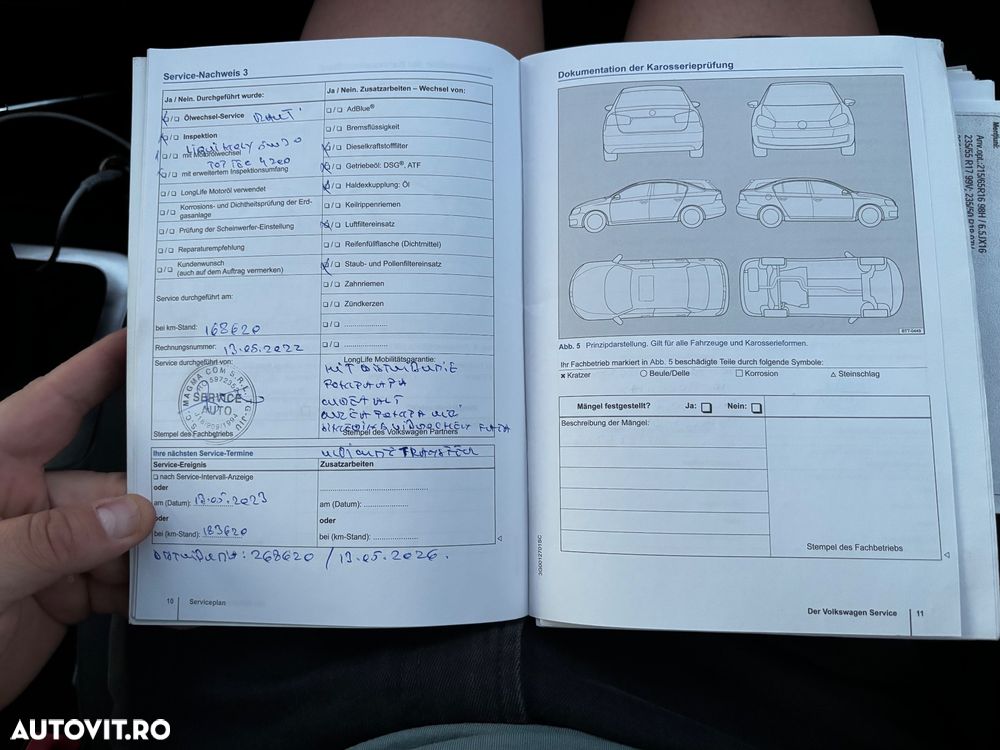 Service-Nachweis 3
Ja / Nein. Durchgeführt wurde:
Ja / Nein. Zusatzarbeiten – Wechsel von:
Ölwechsel-Service
Inspektion
LIQUI MOLY 5W30
mit Motorölwechsel
TOP TEC 4200
mit erweitertem Inspektionsumfang
LongLife Motoröl verwendet
Korrosions- und Dichtheitsprüfung der Erd-
gasanlage
Prüfung der Scheinwerfer-Einstellung
Reparaturempfehlung
Kundenwunsch
(auch auf dem Auftrag vermerken)
AdBlue®
Bremsflüssigkeit
Dieselkraftstofffilter
Getriebeöl: DSG®, ATF
Haldexkupplung: Öl
Keilrippenriemen
Luftfiltereinsatz
Reifenfüllflasche (Dichtmittel)
Staub- und Pollenfiltereinsatz
Zahnriemen
Zündkerzen
Service durchgeführt am:
bei km-Stand: 168620
Rechnungsnummer: 13.05.2022
Service durchgeführt von:
S.C. MAGMA COM S.R.L.
SERVICE
AUTO
Stempel des Fachbetriebs
LongLife Mobilitätsgarantie:
KIT DISTRIBUTIE
POMPA APA
Stempel des Volkswagen Partners
Ihre nächsten Service-Termine
Service-Ereignis
Zusatzarbeiten
nach Service-Intervall-Anzeige
oder
am (Datum): 13.05.2023
oder
bei (km-Stand): 183620
am (Datum):
oder
bei (km-Stand):
268620 / 13.05.2026.
10 Serviceplan
Dokumentation der Karosserieprüfung
BT7-0449
Abb. 5 Prinzipdarstellung. Gilt für alle Fahrzeuge und Karosserieformen.
Ihr Fachbetrieb markiert in Abb. 5 beschädigte Teile durch folgende Symbole:
Kratzer
Beule/Delle
Korrosion
Steinschlag
Mängel festgestellt? Ja: Nein:
Beschreibung der Mängel:
Stempel des Fachbetriebs
3G0012701SC
Der Volkswagen Service 11
Anv.opt.:215/65R16 98H / 6.5JX16
AUTOVIT.RO